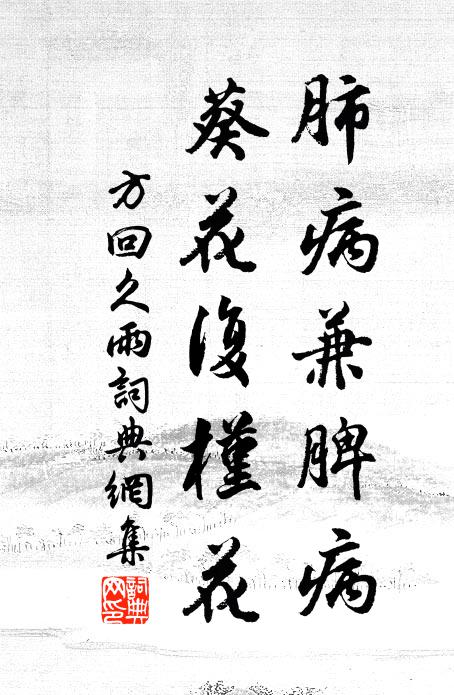 肺病兼脾病
葵花復槿花
方回久雨詞典網集
詞典
网印